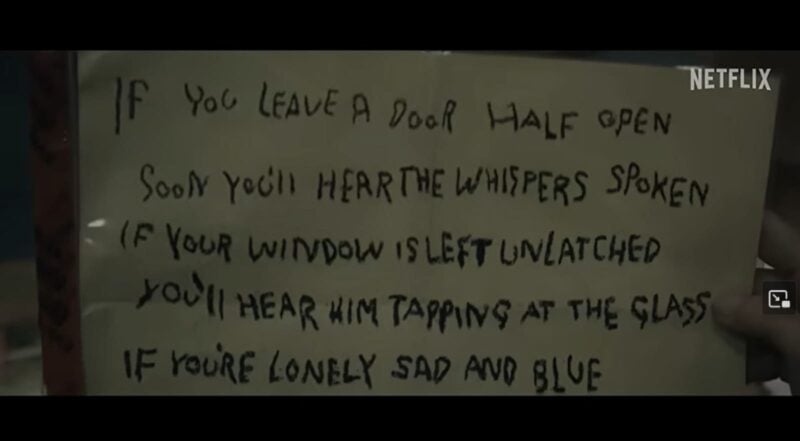 NETFLIX
IF YOU LEAVE A DOOR HALF OPEN
SOON YOU'll HEAR THE WHISPERS SPOKEN
IF YOUR WINDOW IS LEFT UNLATCHED
YOU'll HEAR HIM TAPPING AT THE GLASS
IF YOU'RE LONELY SAD AND BLUE